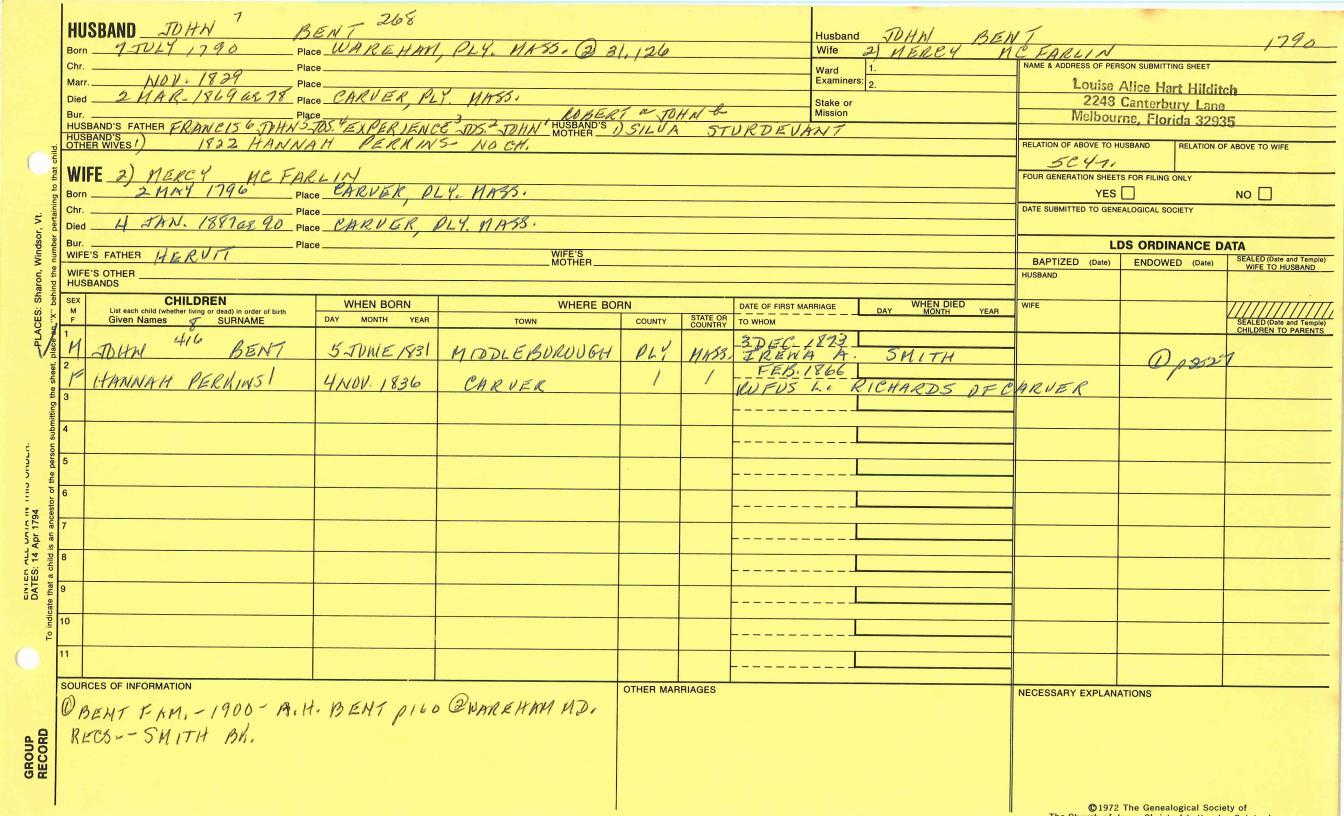 HUSBAND JOHN 7 BENT 268
Born 7 JULY 1790 Place WAREHAM, PLY. MASS. ② 31,126
Chr. Place
Marr. NOV. 1829 Place
Died 2 MAR. 1869 or 78 Place CARVER, PLY. MASS.
Bur. Place ROBERT JOHN
HUSBAND'S FATHER FRANCIS 6 JOHN 5 JOS. 4 EXPERIENCE 3 JOS. 2 JOHN 1 HUSBAND'S MOTHER DSILVA STURDEVANT
HUSBAND'S OTHER WIVES 1) 1822 HANNAH PERKINS - NO CH.
WIFE 2) MERCY MC FARLIN
Born 2 MAY 1796 Place CARVER, PLY. MASS.
Chr. Place
Died 4 JAN. 1887 or 90 Place CARVER, PLY. MASS.
Bur. Place
WIFE'S FATHER HERVIT WIFE'S MOTHER
WIFE'S OTHER HUSBANDS
Husband JOHN BENT 1790
Wife 2) MERCY MC FARLIN
Ward Examiners: 1.
2.
Stake or Mission
NAME & ADDRESS OF PERSON SUBMITTING SHEET
Louise Alice Hart Hilditch
2243 Canterbury Lane
Melbourne, Florida 32935
RELATION OF ABOVE TO HUSBAND RELATION OF ABOVE TO WIFE
5C4r.
FOUR GENERATION SHEETS FOR FILING ONLY
YES NO
DATE SUBMITTED TO GENEALOGICAL SOCIETY
LDS ORDINANCE DATA
BAPTIZED (Date) ENDOWED (Date) SEALED (Date and Temple) WIFE TO HUSBAND
HUSBAND
WIFE
SEALED (Date and Temple) CHILDREN TO PARENTS
SEX M F CHILDREN WHEN BORN WHERE BORN DATE OF FIRST MARRIAGE WHEN DIED
List each child (whether living or dead) in order of birth
Given Names SURNAME DAY MONTH YEAR TOWN COUNTY STATE OR COUNTRY TO WHOM DAY MONTH YEAR
1 M JOHN 8 416 BENT 5 JUNE 1831 MIDDLEBOROUGH PLY MASS. 3 DEC. 1873
IREWA A. SMITH ①
2 F HANNAH PERKINS 4 NOV. 1836 CARVER FEB. 1866
RUFUS L. RICHARDS OF CARVER
3
4
5
6
7
8
9
10
11
SOURCES OF INFORMATION
① BENT FAM. - 1900 - A.H. BENT p160 ② WAREHAM MD.
RECS -- SMITH BK.
OTHER MARRIAGES
NECESSARY EXPLANATIONS
©1972 The Genealogical Society of
PLACES: Sharon, Windsor, Vt.
To indicate that a child is an ancestor of the person submitting the sheet, place an "X" behind the number pertaining to that child.
ENTER ALL DATA IN THIS ORDER:
DATES: 14 Apr 1794
GROUP RECORD